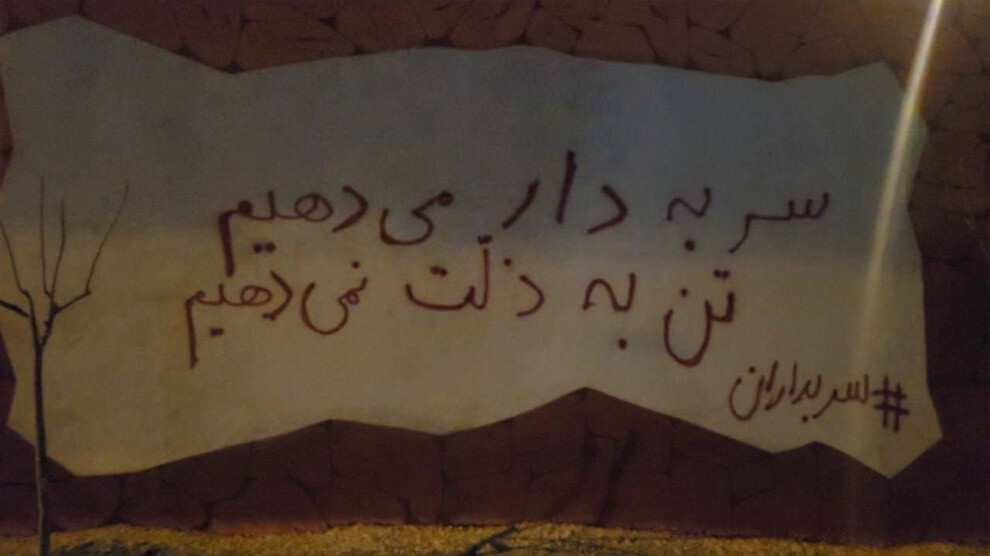 سر به دار می‌دهیم
تن به ذلّت نمی‌دهیم
#سربداران